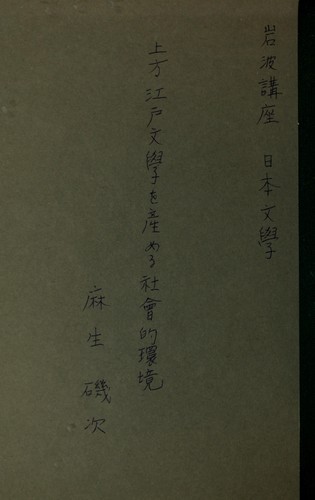 岩波講座 日本文學
上方江戸文學を産める社會的環境
麻生磯次